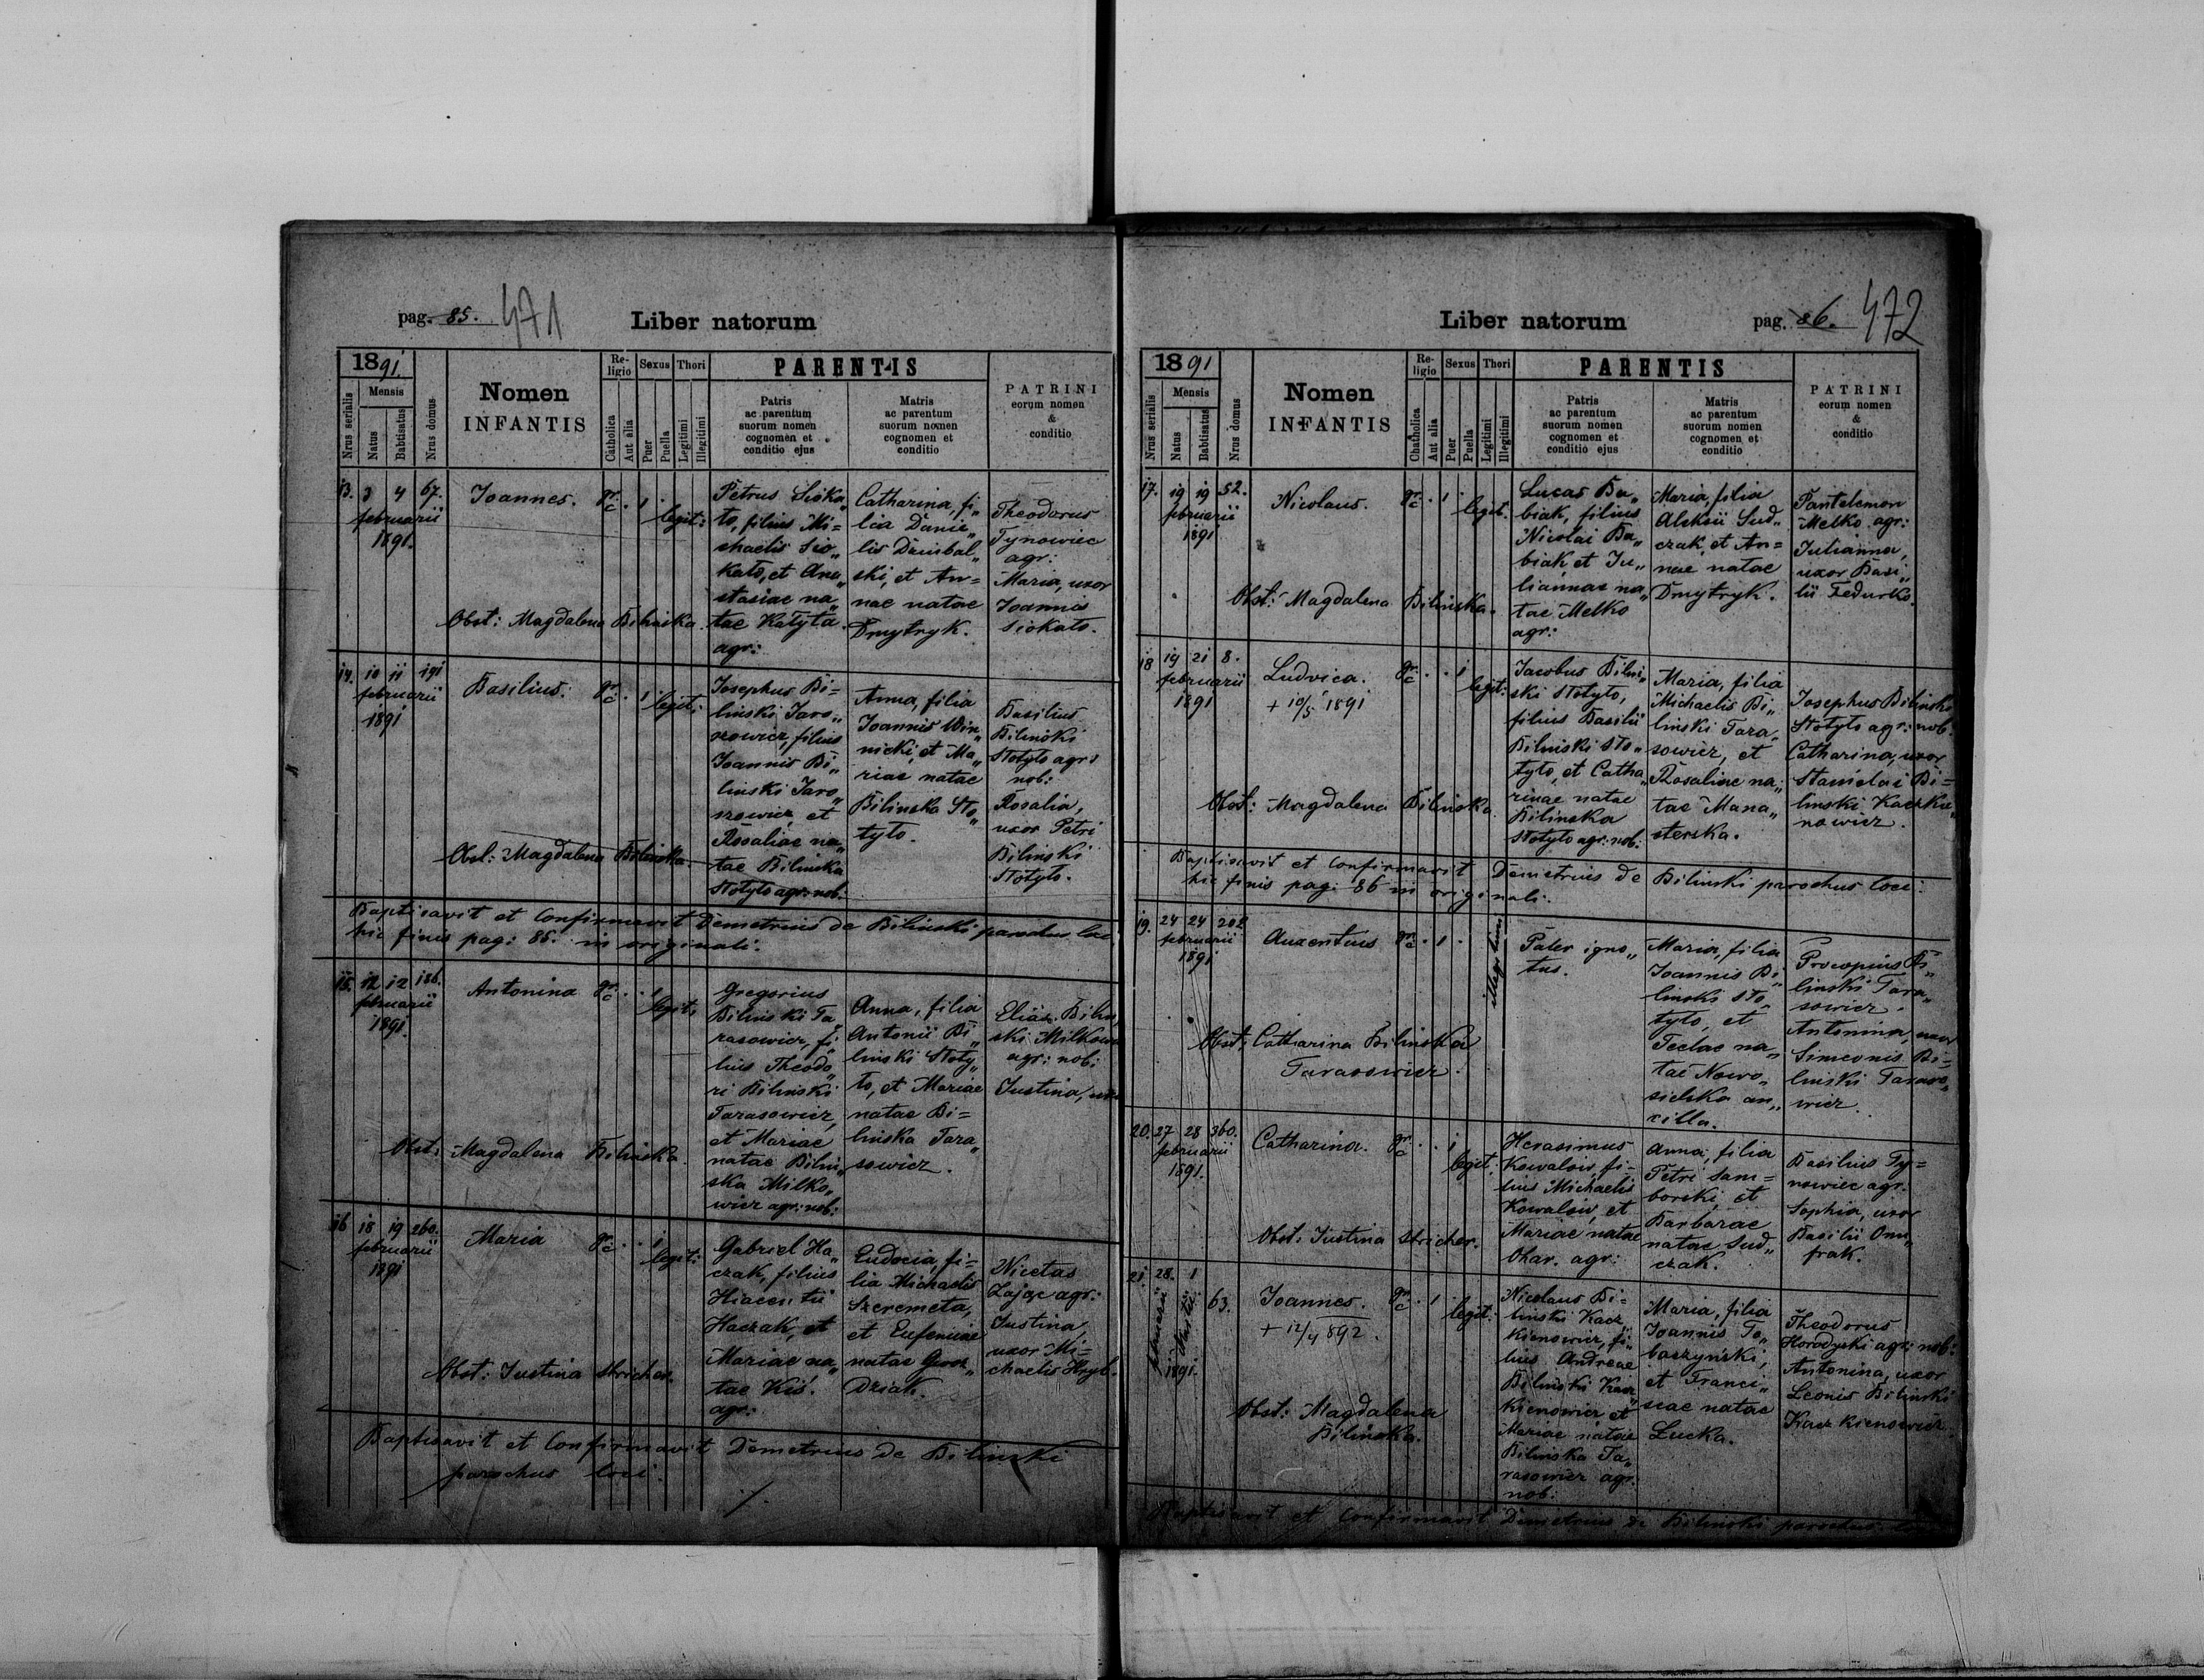 pag. 85. 471
Liber natorum
1891.
Nrus serialis
Mensis
Natus
Babtisatus
Nrus domus
Nomen
INFANTIS
Re-
ligio
Catholica
Aut alia
Sexus
Puer
Puella
Thori
Legitimi
Illegitimi
PARENTIS
Patris
ac parentum
suorum nomen
cognomen et
conditio ejus
Matris
ac parentum
suorum nomen
cognomen et
conditio
PATRINI
eorum nomen
&
conditio
13. 3 4 67.
februarii
1891.
Joannes.
gr. c. 1
legit:
Petrus Sioka„
to, filius Mi=
chaelis Sio„
kato, et Ana„
stasiae na„
tae Katyta.
agr:
Catharina, fi„
lia Danie„
lis Dzinbal„
ski, et An=
nae natae
Dmytryk.
Theodorus
Tynowiec
agr:
Maria, uxor
Joannis
Siokato.
Obst: Magdalena Bilinska.
14. 10 11 191
februarii
1891
Basilius.
gr. c. 1
legit:
Josephus Bi=
linski Jaro„
szowicz, filius
Joannis Bi„
linski Jaro„
szowicz et
Rosaliae na„
tae Bilinska
Stotyto agr: nob:
Anna, filia
Joannis Win„
nicki, et Ma„
riae natae
Bilinska Sto„
tyto.
Basilius
Bilinski
Stotyto agr:
nob:
Rosalia,
uxor Petri
Bilinski
Stotyto.
Obst: Magdalena Bilinska.
Baptisavit et confirmavit Demetrius de Bilinski parochus loci
hic finis pag: 85. in originali.
15. 12 12 186.
februarii
1891.
Antonina
gr. c. 1
legit:
Gregorius
Bilinski Ta„
rasowicz, fi„
lius Theodo„
ri Bilinski
Tarasowicz,
et Mariae
natae Bilin„
ska Milko„
wicz agr: nob:
Anna, filia
Antonii Bi„
linski Stoty„
to, et Mariae
natae Bi=
linska Tara„
sowicz.
Elias Bilin„
ski Milkowicz
agr: nob:
Justina, uxor
Obst: Magdalena Bilinska.
16 18 19 260.
februarii
1891
Maria
gr. c. 1
legit:
Gabriel Ha„
czak, filius
Hiacentii
Haczak, et
Mariae na„
tae Kiś.
agr:
Eudocia, fi=
lia Michaelis
Szeremeta,
et Eufemiae
natae Gwoz„
dziak.
Nicetas
Zając agr:
Justina,
uxor Mi=
chaelis Hryb.
Obst: Justina Stricher.
Baptisavit et Confirmavit Demetrius de Bilinski
parochus loci.
Liber natorum
pag. 86. 472
1891
Nrus serialis
Mensis
Natus
Babtisatus
Nrus domus
Nomen
INFANTIS
Re-
ligio
Chatholica
Aut alia
Sexus
Puer
Puella
Thori
Legitimi
Illegitimi
PARENTIS
Patris
ac parentum
suorum nomen
cognomen et
conditio ejus
Matris
ac parentum
suorum nomen
cognomen et
conditio
PATRINI
eorum nomen
&
conditio
17. 19 19 52.
februarii
1891
Nicolaus.
gr. c. 1
legit.
Lucas Ba„
biak, filius
Nicolai Ba„
biak et Ju„
liannae na„
tae Melko
agr:
Maria, filia
Aleksii Sud„
czak, et An=
nae natae
Dmytryk.
Pantelemon
Melko agr:
Julianna,
uxor Basi„
lii Fedurko.
Obst: Magdalena Bilinska.
18 19 21 8.
februarii
1891
Ludvica.
+ 10/5 1891
gr. c. 1
legit:
Jacobus Bilin„
ski Stotyto,
filius Basilii
Bilinski Sto„
tyto, et Catha„
rinae natae
Bilinska
Stotyto agr: nob:
Maria, filia
Michaelis Bi„
linski Tara„
sowicz, et
Rosaliae na„
tae Mana„
sterska.
Josephus Bilinski
Stotyto agr: nob.
Catharina, uxor
Stanislai Bi=
linski Kaczkie„
nowicz.
Obst: Magdalena Bilinska.
Baptisavit et Confirmavit Demetrius de Bilinski parochus loci:
hic finis pag: 86 in originali.
19. 24 24 202
februarii
1891
Auxentius
gr. c. 1
illegitimi
Pater igno„
tus.
Maria, filia
Joannis Bi„
linski Sto„
tyto, et
Teclae na„
tae Nowo„
sielska an„
cilla.
Procopius Bi„
linski Tara„
sowicz.
Antonina, uxor
Simeonis Bi=
linski Taraso„
wicz.
Obst: Catharina Bilinska
Tarasowicz.
20. 27 28 360.
februarii
1891.
Catharina.
gr. c. 1
legit:
Herasimus
Kowalow, fi=
lius Michaelis
Kowalow, et
Mariae natae
Ohar. agr:
Anna, filia
Petri Sam=
borski, et
Barbarae
natae Sud„
czak.
Basilius Ty=
nowiec agr.
Sophia, uxor
Basilii Onu„
frak.
Obst: Justina Stricher.
21. 28. 1 63.
februarii Martii
1891.
Joannes.
+ 12/4 892.
gr. c. 1
legit:
Nicolaus Bi=
linski Kacz„
kienowicz, fi„
lius Andreae
Bilinski Kacz„
kienowicz et
Mariae natae
Bilinska Ta„
rasowicz agr:
nob:
Maria, filia
Joannis To„
baszynski,
et Franci„
scae natae
Lucka.
Theodorus
Horodyski agr: nob:
Antonina, uxor
Leonis Bilinski
Kaczkienowicz.
Obst: Magdalena
Bilinska.
Baptisavit et Confirmavit Demetrius de Bilinski parochus